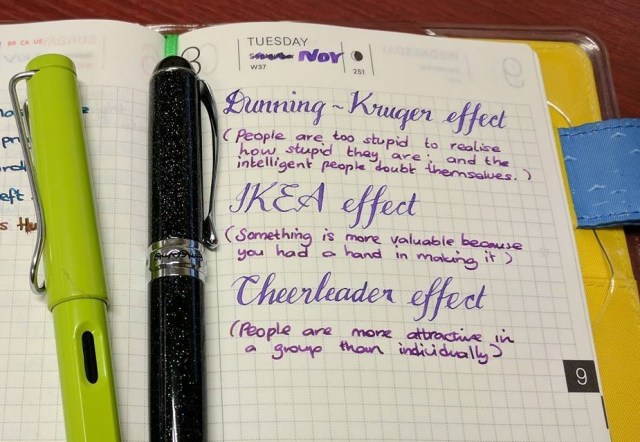 BR CA UE
pr
eft
s
8
TUESDAY
Nov
W37
251
Dunning~Kruger effect
(People are too stupid to realise
how stupid they are; and the
intelligent people doubt themselves.)
IKEA effect
(Something is more valuable because
you had a hand in making it)
Cheerleader effect
(People are more attractive in
a group than individually)
9